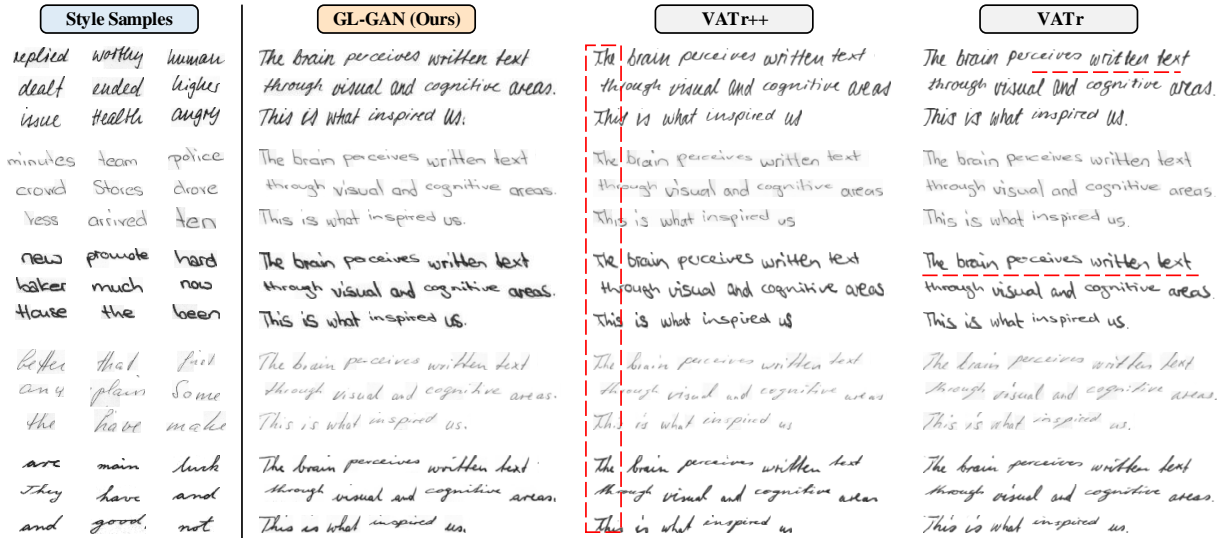 Style Samples
replied worthy human
dealt ended higher
issue Health angry
minutes team police
crowd Stores drove
ress arrived ten
new promote hard
baker much now
House the been
better that first
any plain Some
the have make
are main luck
They have and
and good. not
GL-GAN (Ours)
The brain perceives written text
through visual and cognitive areas.
This is what inspired us.
The brain perceives written text
through visual and cognitive areas.
This is what inspired us.
The brain perceives written text
through visual and cognitive areas.
This is what inspired us.
The brain perceives written text
through visual and cognitive areas.
This is what inspired us.
The brain perceives written text
through visual and cognitive areas.
This is what inspired us.
VATr++
The brain perceives written text
through visual and cognitive areas
This is what inspired us
The brain perceives written text
through visual and cognitive areas
This is what inspired us
The brain perceives written text
through visual and cognitive areas
This is what inspired us
The brain perceives written text
through visual and cognitive areas
This is what inspired us
The brain perceives written text
through visual and cognitive areas
This is what inspired us
VATr
The brain perceives written text
through visual and cognitive areas.
This is what inspired us.
The brain perceives written text
through visual and cognitive areas.
This is what inspired us.
The brain perceives written text
through visual and cognitive areas.
This is what inspired us.
The brain perceives written text
through visual and cognitive areas.
This is what inspired us.
The brain perceives written text
through visual and cognitive areas.
This is what inspired us.